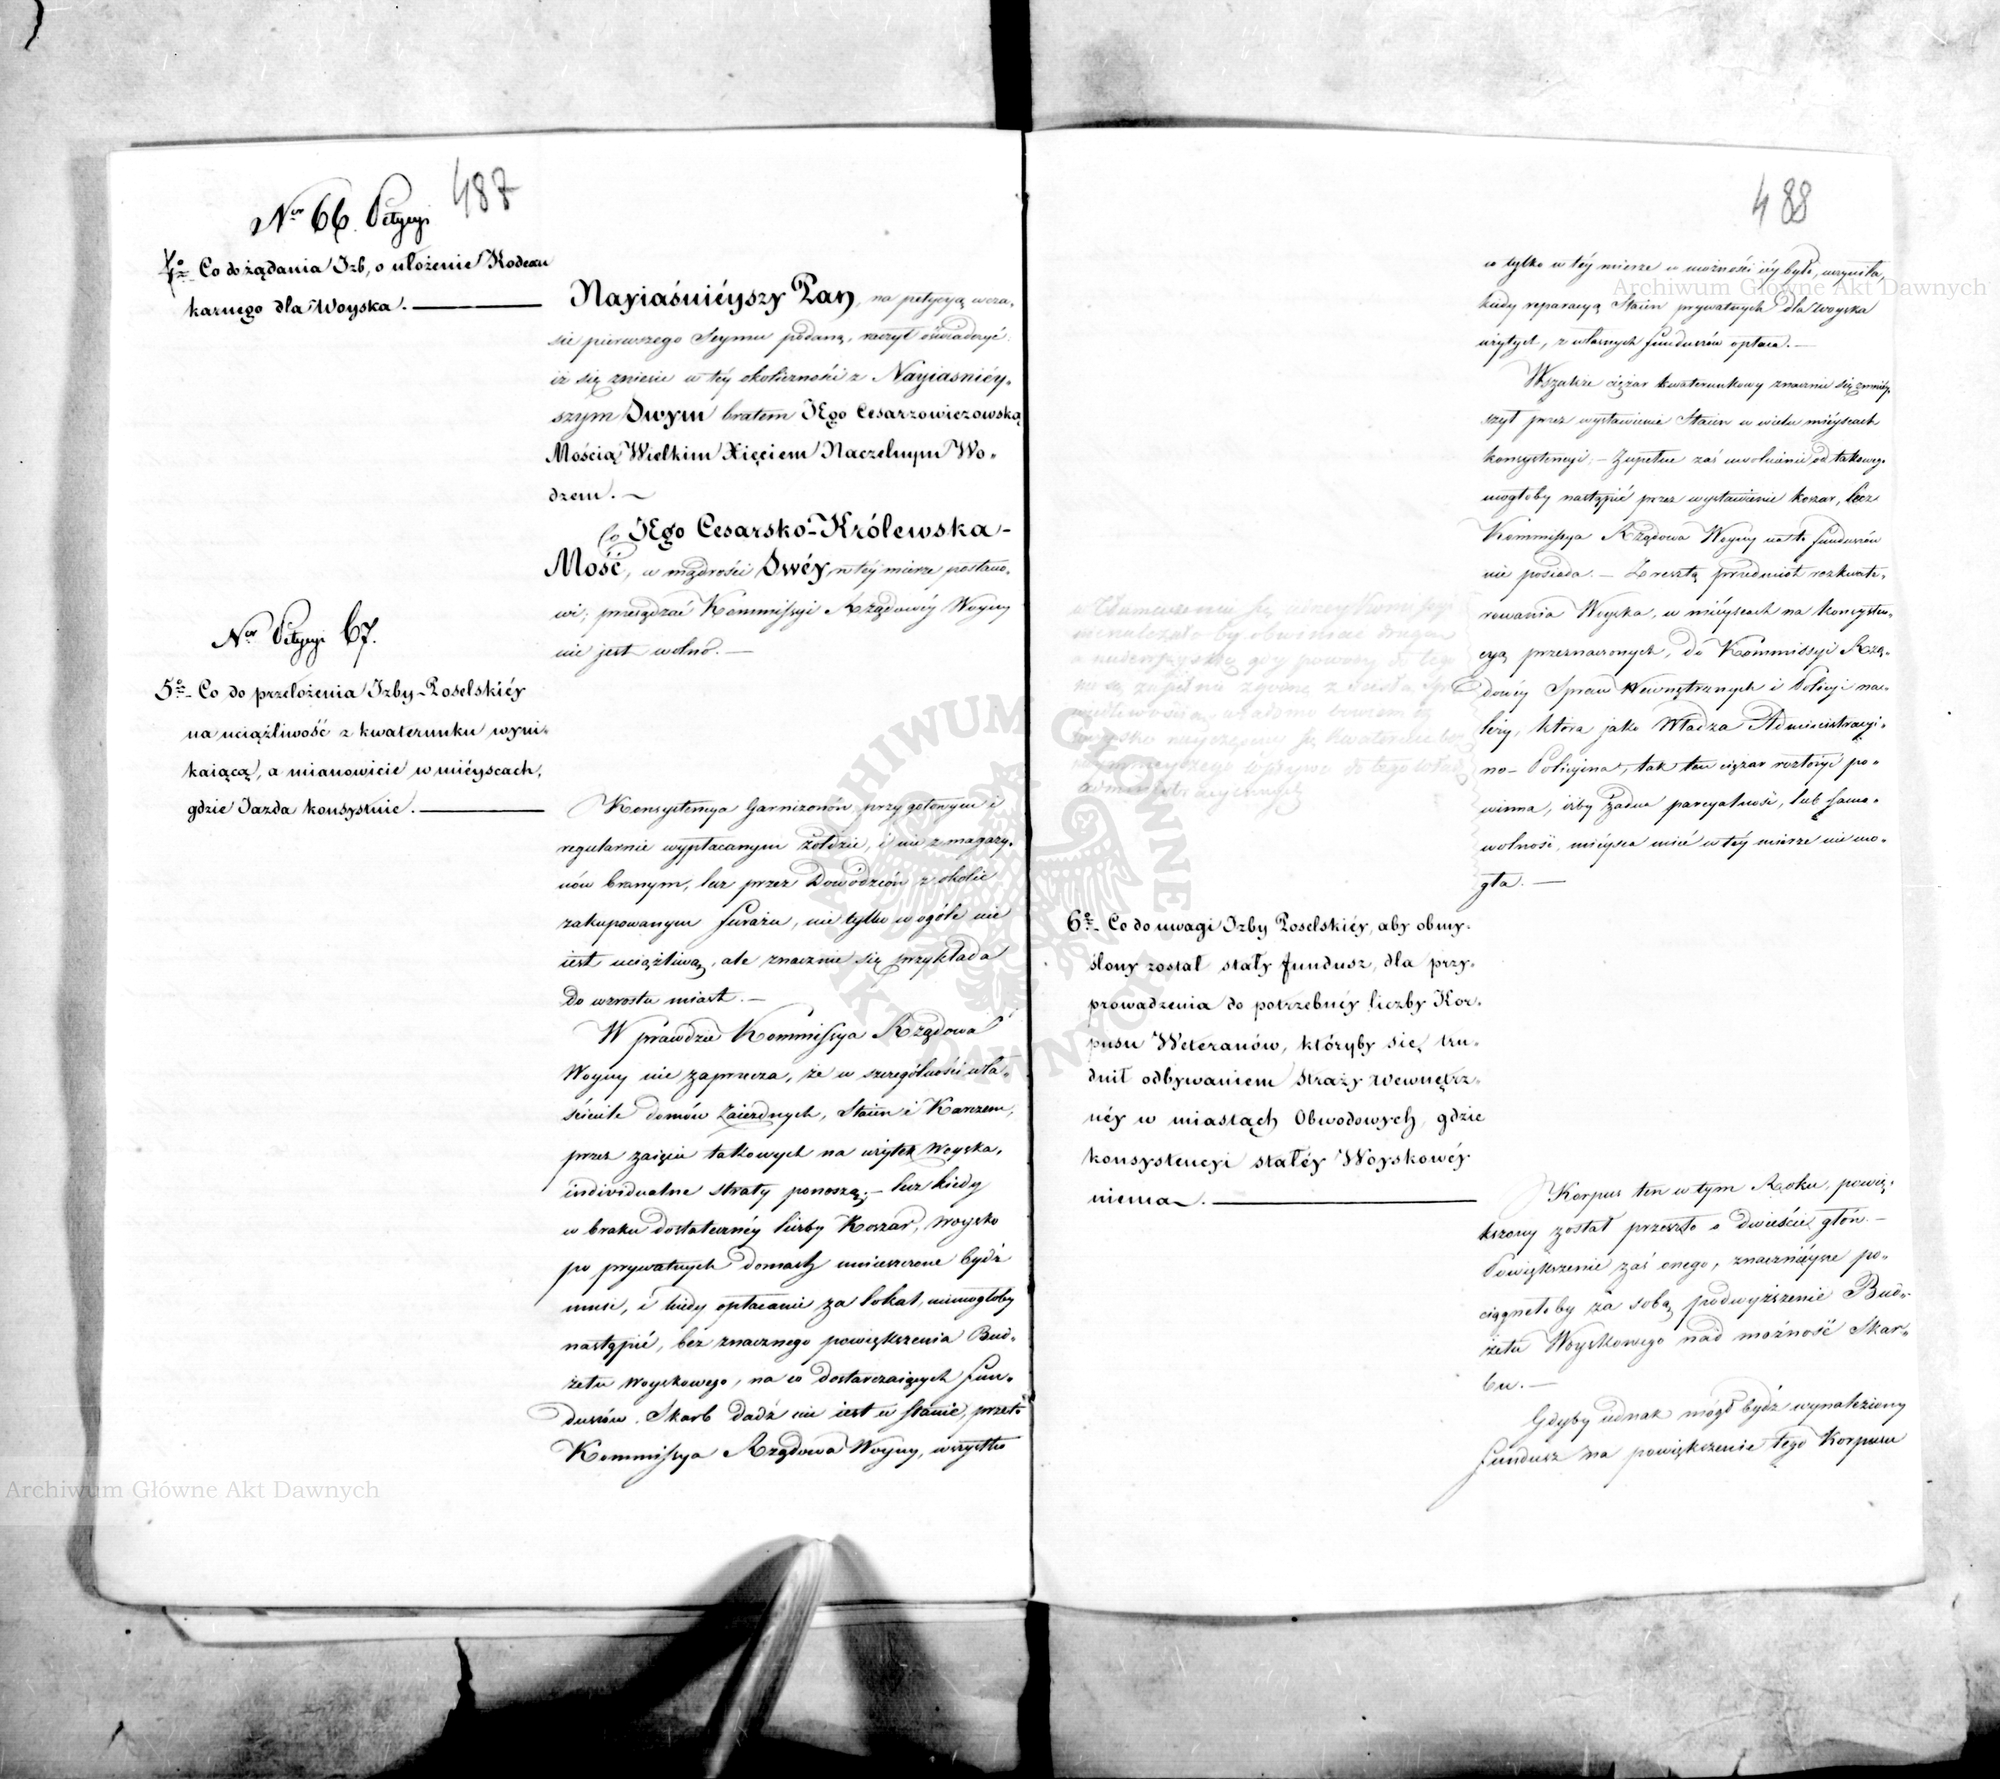 487
Nro 66. Petycyi
4o Co do żądania Izb, o ułożenie Kodexu
karnego dla Woyska. —
Nayiaśniéyszy Pan, na petycyą w cza-
sie pierwszego Seymu podaną, raczył oświadczyć:
iż się zniesie w téy okoliczności z Nayiaśniéy-
szym Swym bratem JEgo Cesarzowiczowską
Mością Wielkim Xięciem Naczelnym Wo-
dzem. —
Co JEgo Cesarsko-Królewska-
Mość, w mądrości Swéy, w téy mierze postano-
wi; przesądzać Kommissyi Rządowéy Woyny
nie jest wolno. —
Nro Petycyi 67.
5o Co do przełożenia Izby-Poselskiéy
na uciążliwość z kwaterunku wyni-
kaiącą, a mianowicie w miéyscach,
gdzie Jazda konsystuie. —
Konsystencya Garnizonów przy gotowym i
regularnie wypłacanym żołdzie, i nie z magazy-
nów branym, lecz przez Dowódzców z okolic
zakupowanym furażu, nie tylko w ogóle nie
iest uciążliwą, ale znacznie się przykłada
do wzrostu miast. —
W prawdzie Kommissya Rządowa
Woyny nie zaprzecza, że w szczególności wła-
ściciele domów Zaiezdnych, Staien i Karczem,
przez zaięcie takowych na użytek Woyska,
individualne straty ponoszą; — lecz kiedy
w braku dostatecznéy liczby Koszar, Woysko
po prywatnych domach umieszczone bydź
musi, i kiedy opłacanie za lokal, niemogłoby
nastąpić, bez znacznego powiększenia Bud-
żetu Woyskowego, na co dostarczaiących fun-
duszów Skarb dadź nie iest w stanie, przeto
Kommissya Rządowa Woyny, wszystko
488
co tylko w téy mierze w możności iéy było, uczyniła,
kiedy reparacyą Staien prywatnych dla Woyska
użytych, z własnych funduszów opłaca. —
Wszakże ciężar kwaterunkowy znacznie się zmniéy-
szył przez wystawienie Staien w wielu miéyscach
konsystencyi; — Zupełne zaś uwolnienie od takowego
mogłoby nastąpić przez wystawienie koszar, lecz
Kommissya Rządowa Woyny na to funduszów
nie posiada. — Zresztą przedmiot rozkwate-
rowania Woyska, w miéyscach na konsysten-
cyą przeznaczonych, do Kommissyi Rzą-
dowéy Spraw Wewnętrznych i Policyi na-
leży, która jako Władza Administracyi-
no-Policyina, tak ten ciężar rozłożyć po-
winna, iżby żadna parcyalność, lub samo-
wolność, mieysca mieć w téy mierze nie mo-
gła. —
6o Co do uwagi Izby Poselskiéy, aby obmy-
ślony został stały fundusz, dla przy-
prowadzenia do potrzebnéy liczby Kor-
pusu Weteranów, któryby się tru-
dnił odbywaniem straży wewnętrz-
néy w miastach Obwodowych, gdzie
konsystencyi stałéy Woyskowéy
niema. —
Korpus ten w tym Roku, powię-
kszony został przeszło o dwieście głów. —
Powiększenie zaś onego, znacznieysze po-
ciągnęłoby za sobą podwyższenie Bud-
żetu Woyskowego nad możność Skar-
bu. —
Gdyby iednak mógł bydź wynaleziony
fundusz na powiększenie tego Korpusu
Archiwum Główne Akt Dawnych
Archiwum Główne Akt Dawnych
ARCHIWUM GŁÓWNE AKT DAWNYCH